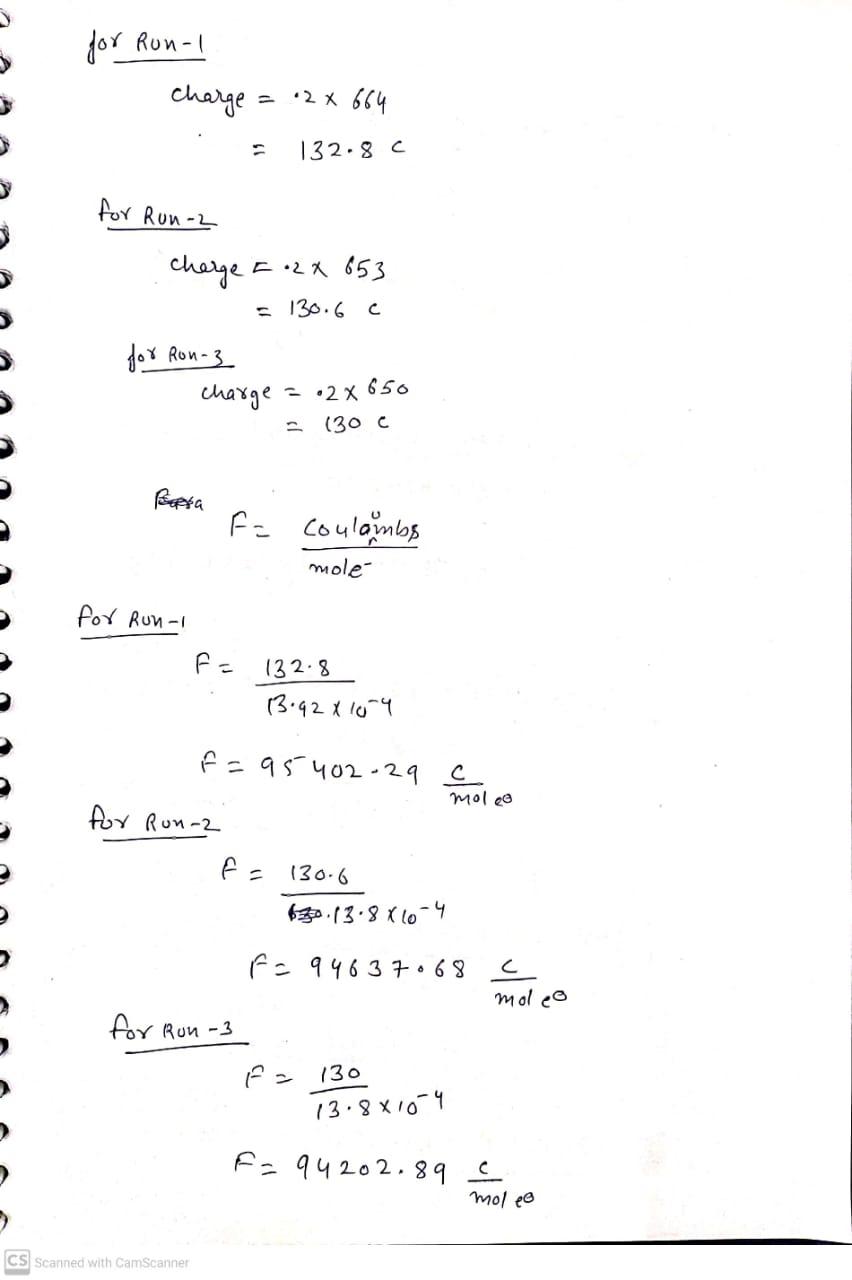 for Run-1
charge = .2 x 664
= 132.8 C
for Run-2
charge = .2 x 653
= 130.6 C
for Run-3
charge = .2 x 650
= 130 C
F = Coulumbs
mole-
for Run-1
F = 132.8
13.92 x 10-4
F = 95402.29 C
mol e⊖
for Run-2
F = 130.6
13.8 x 10-4
F = 94637.68 C
mol e⊖
for Run-3
F = 130
13.8 x 10-4
F = 94202.89 C
mol e⊖
CS Scanned with CamScanner